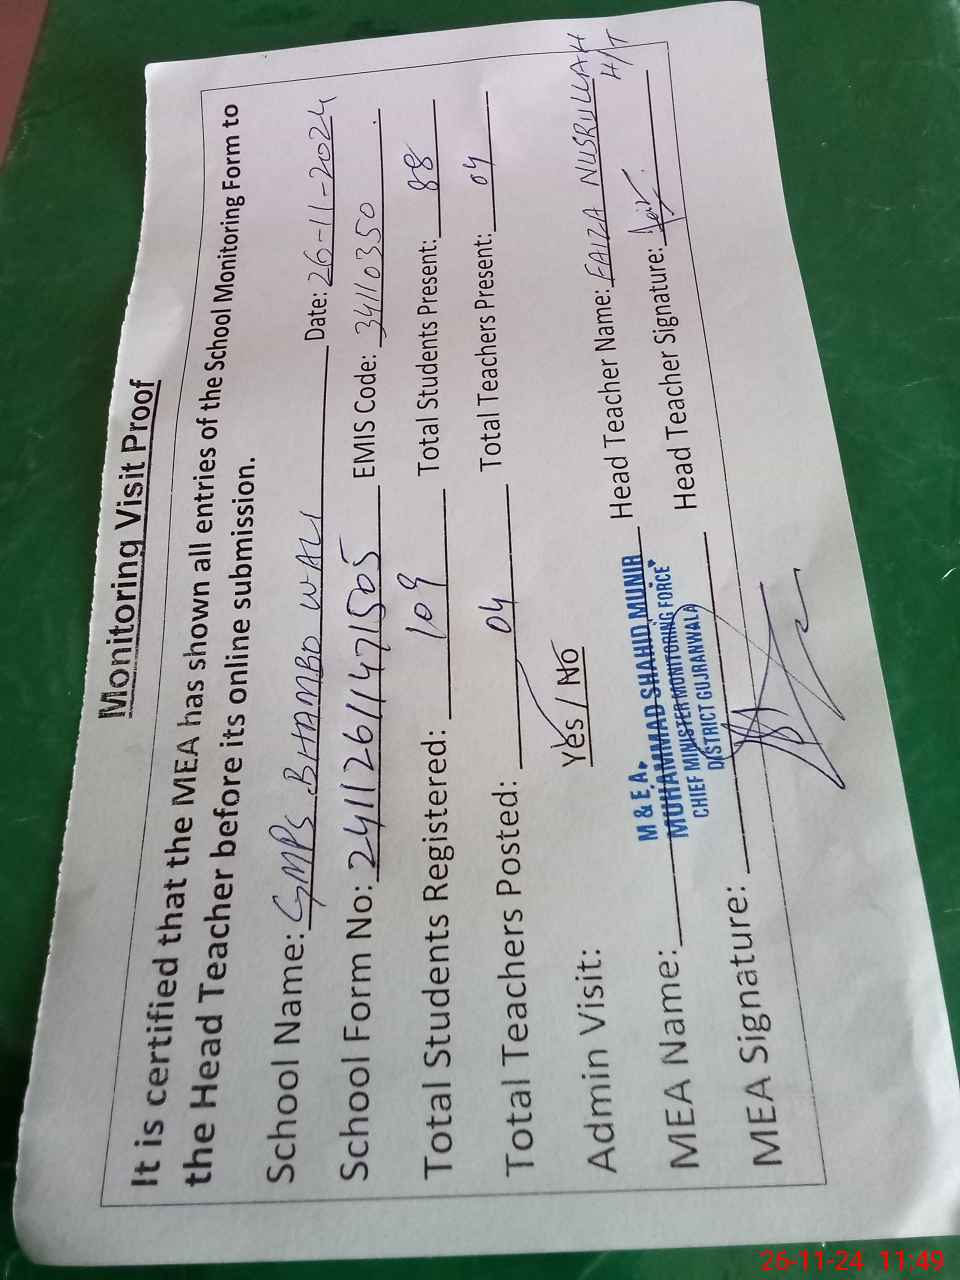 Monitoring Visit Proof
It is certified that the MEA has shown all entries of the School Monitoring Form to
the Head Teacher before its online submission.
School Name: GMPS BHAMBO WALI Date: 26-11-2024
School Form No: 241112611471505 EMIS Code: 34110350
Total Students Registered: 109 Total Students Present: 88
Total Teachers Posted: 04 Total Teachers Present: 04
Admin Visit: Yes / No
M & E.A.
MEA Name: MUHAMMAD SHAHID MUNIR Head Teacher Name: FAIZA NUSRULLAH H/T
CHIEF MINISTER MONITORING FORCE
DISTRICT GUJRANWALA
MEA Signature: Head Teacher Signature:
26-11-24 11:49